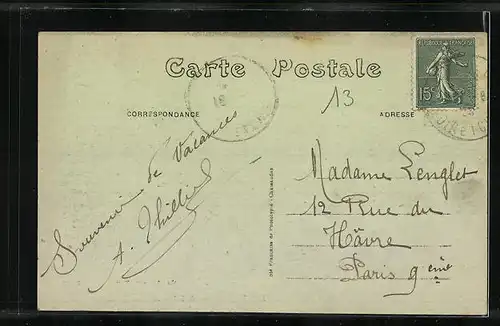 Carte Postale
CORRESPONDANCE
ADRESSE
REPUBLIQUE FRANÇAISE
15c
13
Souvenir de Vacances
A.
Madame Lenglet
12 Rue du
Hâvre
Paris 9ème